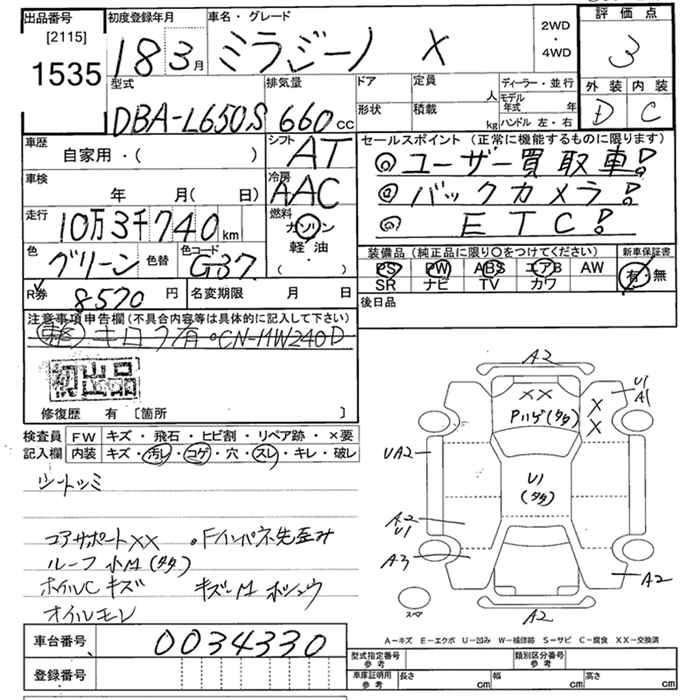 出品番号
[2115]
1535
初度登録年月
18 3月
車名・グレード
ミラジーノ X
2WD
・
4WD
評価点
3
外装 内装
D C
型式
DBA-L650S
排気量
660cc
ドア
形状
定員
人
積載
kg
ディーラー・並行
モデル年式 年
ハンドル 左・右
車歴
自家用・( )
シフト
AT
車検
年 月( 日)
冷房
AAC
走行
10万3千740km
燃料
ガソリン
軽油
( )
色
グリーン
色替
色コード
G37
R券
8570円
名変期限 月 日
セールスポイント (正常に機能するものに限ります)
◎ユーザー買取車!
◎バックカメラ!
◎ETC!
装備品(純正品に限り○をつけてください)
新車保証書
PS PW ABS エアB AW
有・無
SR ナビ TV カワ
後日品
注意事項申告欄(不具合内容等は具体的に記入して下さい)
キロク有 ・CN-HW240D
初出品
修復歴 有 [箇所 ]
検査員
記入欄
FW キズ・飛石・ヒビ割・リペア跡・×要
内装 キズ・汚レ・コゲ・穴・スレ・キレ・破レ
シートシミ
コアサポートXX ・Fインパネ先歪み
ルーフ小M(タタ)
ホイルCキズ キズ〜M ホシュウ
オイルモレ
車台番号 0034330
登録番号
A2
XX
Pハゲ(タタ)
U1
A1
X
X
UA2
U1
(タタ)
A2
U1
A3
A2
A2
スペア
A－キズ E－エクボ U－凹み W－補修跡 S－サビ C－腐食 XX－交換済
型式指定番号
参考
類別区分番号
参考
車庫証明用
参考
長さ cm 幅 cm 高さ cm